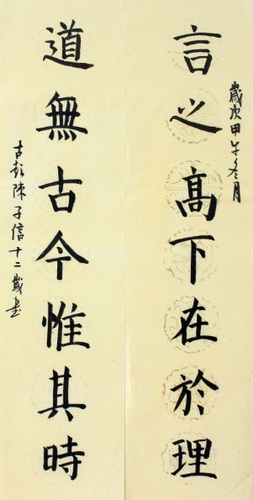 言之高下在於理
歲次甲午冬月
道無古今惟其時
古彭陳子信十二歲書